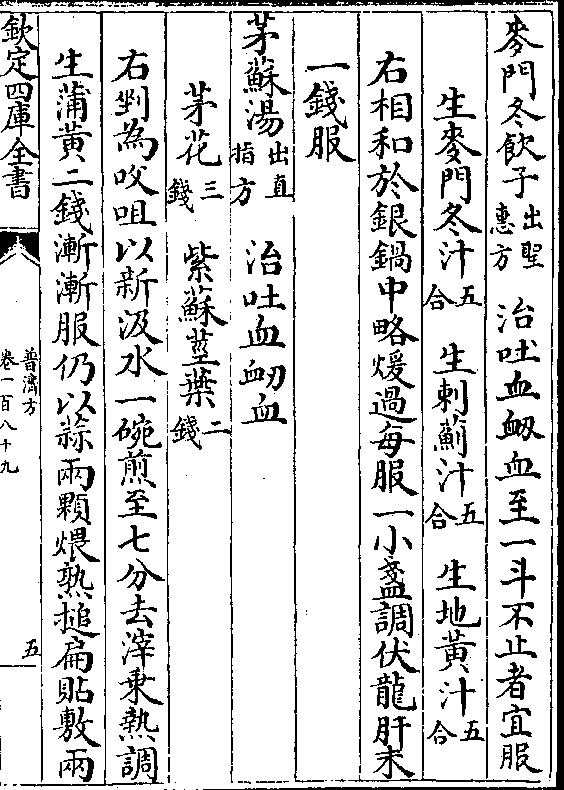 麥門冬飲子出聖惠方　治吐血衂血至一斗不止者宜服
生麥門冬汁五合　生刺薊汁五合　生地黃汁五合
右相和於銀鍋中略煖過每服一小盞調伏龍肝末
一錢服
茅蘇湯出直指方　治吐血衂血
茅花三錢　紫蘇莖葉二錢
右剉為㕮咀以新汲水一碗煎至七分去滓乗熱調
生蒲黃二錢漸漸服仍以蒜兩顆煨熟搥扁貼敷兩
欽定四庫全書
普濟方
卷一百八十九
五